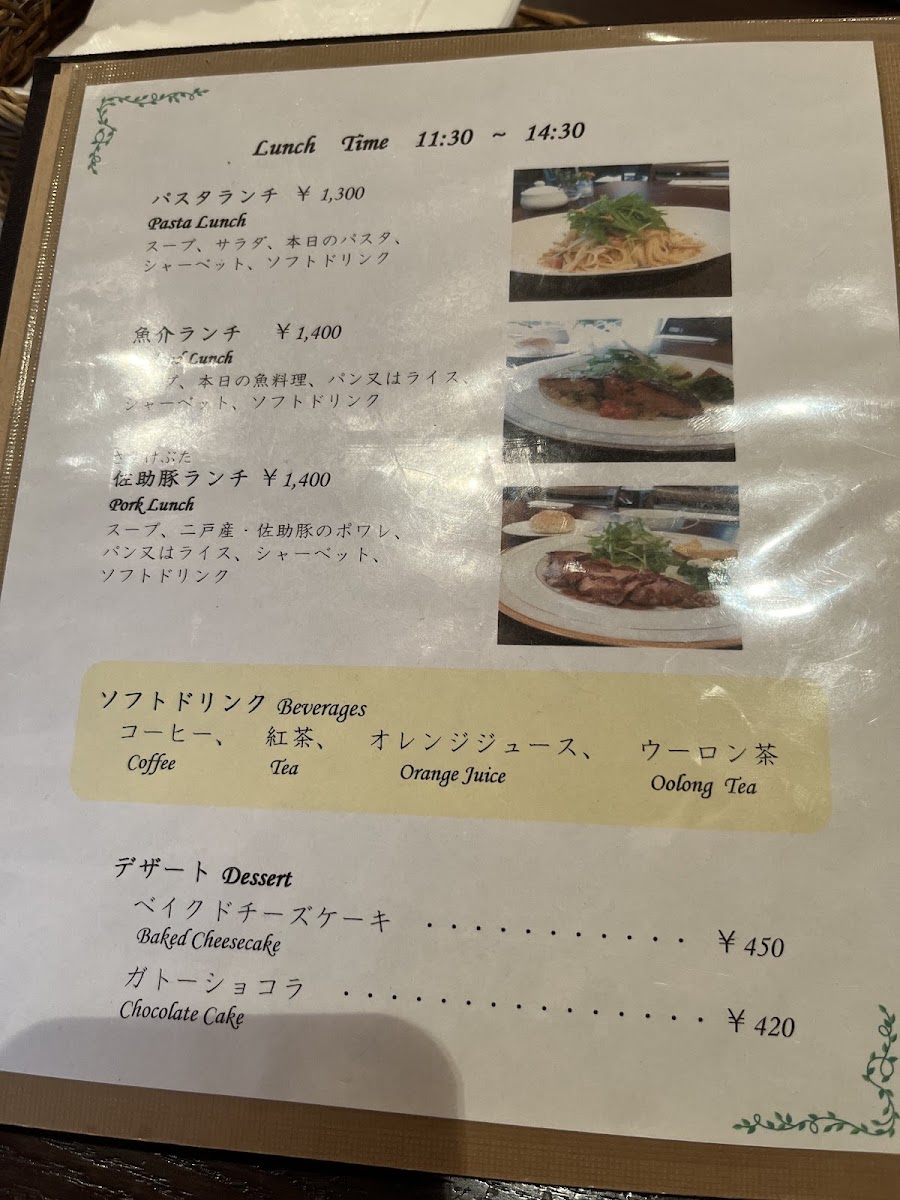 Lunch Time 11:30 ~ 14:30
パスタランチ ￥1,300
Pasta Lunch
スープ、サラダ、本日のパスタ、
シャーベット、ソフトドリンク
魚介ランチ ￥1,400
Lunch
本日の魚料理、パン又はライス、
シャーベット、ソフトドリンク
佐助豚ランチ ￥1,400
Pork Lunch
スープ、二戸産・佐助豚のポワレ、
パン又はライス、シャーベット、
ソフトドリンク
ソフトドリンク Beverages
コーヒー、 紅茶、 オレンジジュース、 ウーロン茶
Coffee Tea Orange Juice Oolong Tea
デザート Dessert
ベイクドチーズケーキ ・・・・・・・・・・・ ￥450
Baked Cheesecake
ガトーショコラ ・・・・・・・・・・・・・・・ ￥420
Chocolate Cake